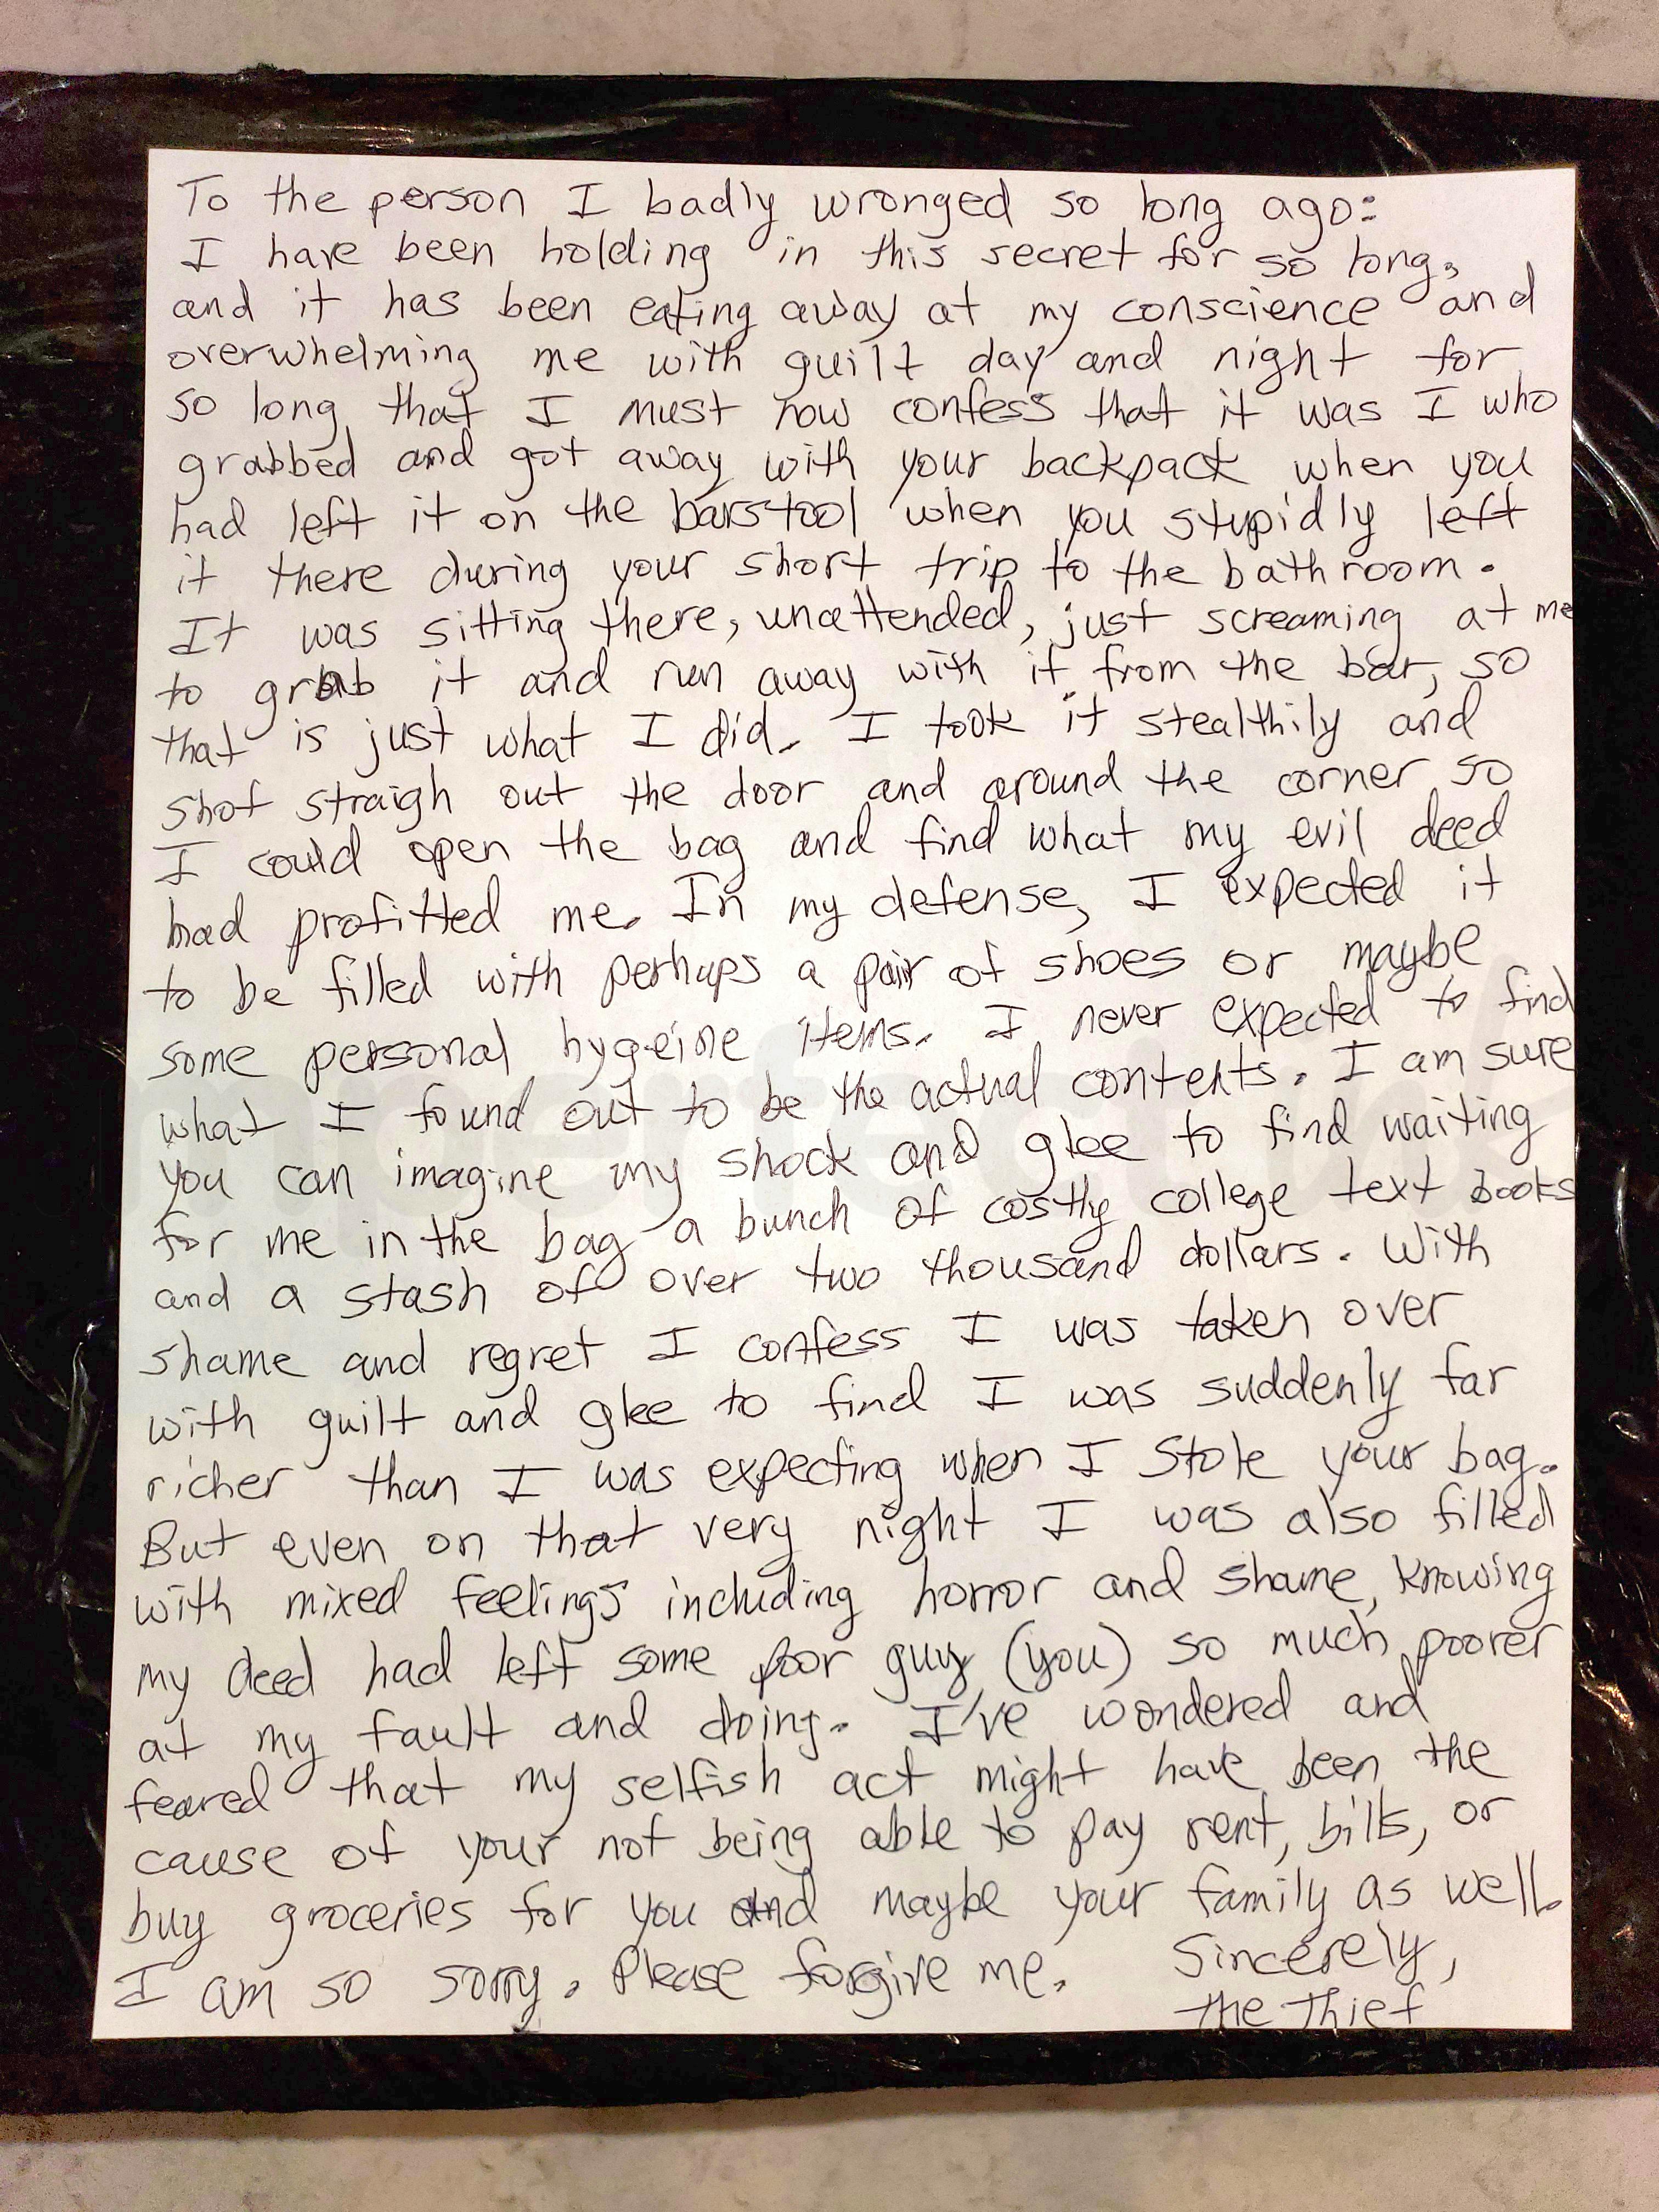 To the person I badly wronged so long ago:
I have been holding in this secret for so long,
and it has been eating away at my conscience and
overwhelming me with guilt day and night for
so long that I must now confess that it was I who
grabbed and got away with your backpack when you
had left it on the barstool when you stupidly left
it there during your short trip to the bathroom.
It was sitting there, unattended, just screaming at me
to grab it and run away with it from the bar, so
that is just what I did. I took it stealthily and
shot straigh out the door and around the corner so
I could open the bag and find what my evil deed
had profitted me. In my defense, I expected it
to be filled with perhaps a pair of shoes or maybe
some personal hygeine items. I never expected to find
what I found out to be the actual contents. I am sure
you can imagine my shock and glee to find waiting
for me in the bag a bunch of costly college text books
and a stash of over two thousand dollars. With
shame and regret I confess I was taken over
with guilt and glee to find I was suddenly far
richer than I was expecting when I stole your bag.
But even on that very night I was also filled
with mixed feelings including horror and shame, knowing
my deed had left some poor guy (you) so much poorer
at my fault and doing. I've wondered and
feared that my selfish act might have been the
cause of your not being able to pay rent, bills, or
buy groceries for you and maybe your family as well.
I am so sorry. Please forgive me. Sincerely,
the Thief